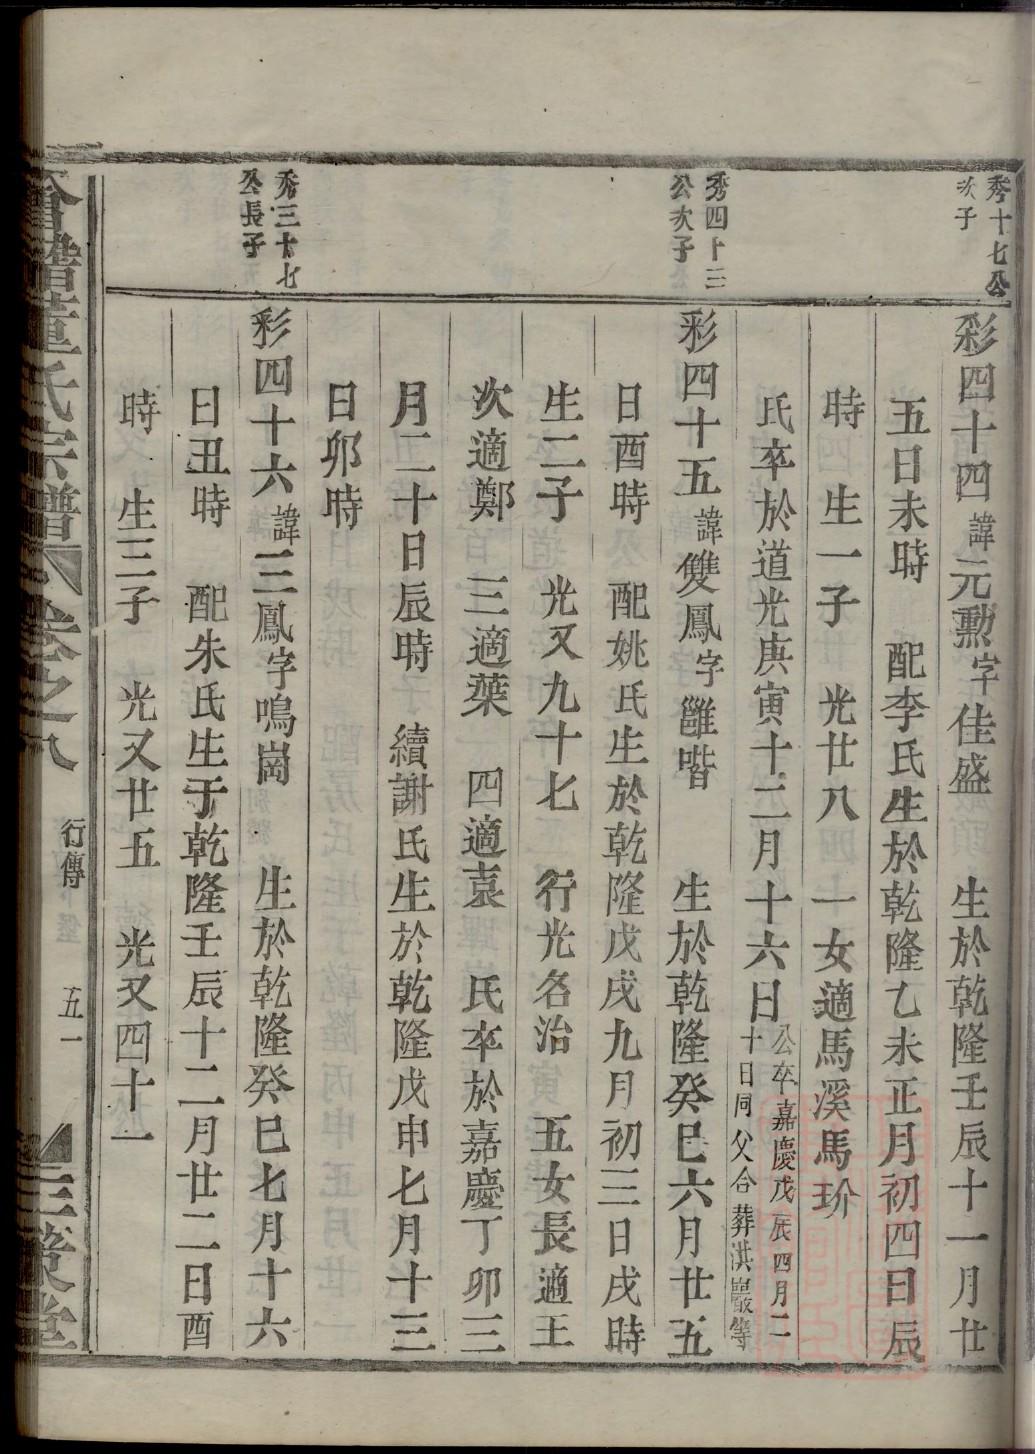 秀十七公
次子
彩四十四諱元勲字佳盛　生於乾隆壬辰十一月廿
五日未時　配李氏生於乾隆乙未正月初四日辰
時　生一子　光廿八　一女適馬溪馬玠
氏卒於道光庚寅十二月十六日
公卒嘉慶戊辰四月二
十日同父合葬淇巖等
秀四十三
公次子
彩四十五諱雙鳳字雝喈　生於乾隆癸巳六月廿五
日酉時　配姚氏生於乾隆戊戌九月初三日戌時
生二子　光又九十七　行光名治　五女長適王
次適鄭　三適葉　四適袁　氏卒於嘉慶丁卯三
月二十日辰時　續謝氏生於乾隆戊申七月十三
日卯時
秀三十七
公長子
彩四十六諱三鳳字鳴崗　生於乾隆癸巳七月十六
日丑時　配朱氏生于乾隆壬辰十二月廿二日酉
時　生三子　光又廿五　光又四十一
董氏宗譜　卷之八　行傳　五一　三策堂